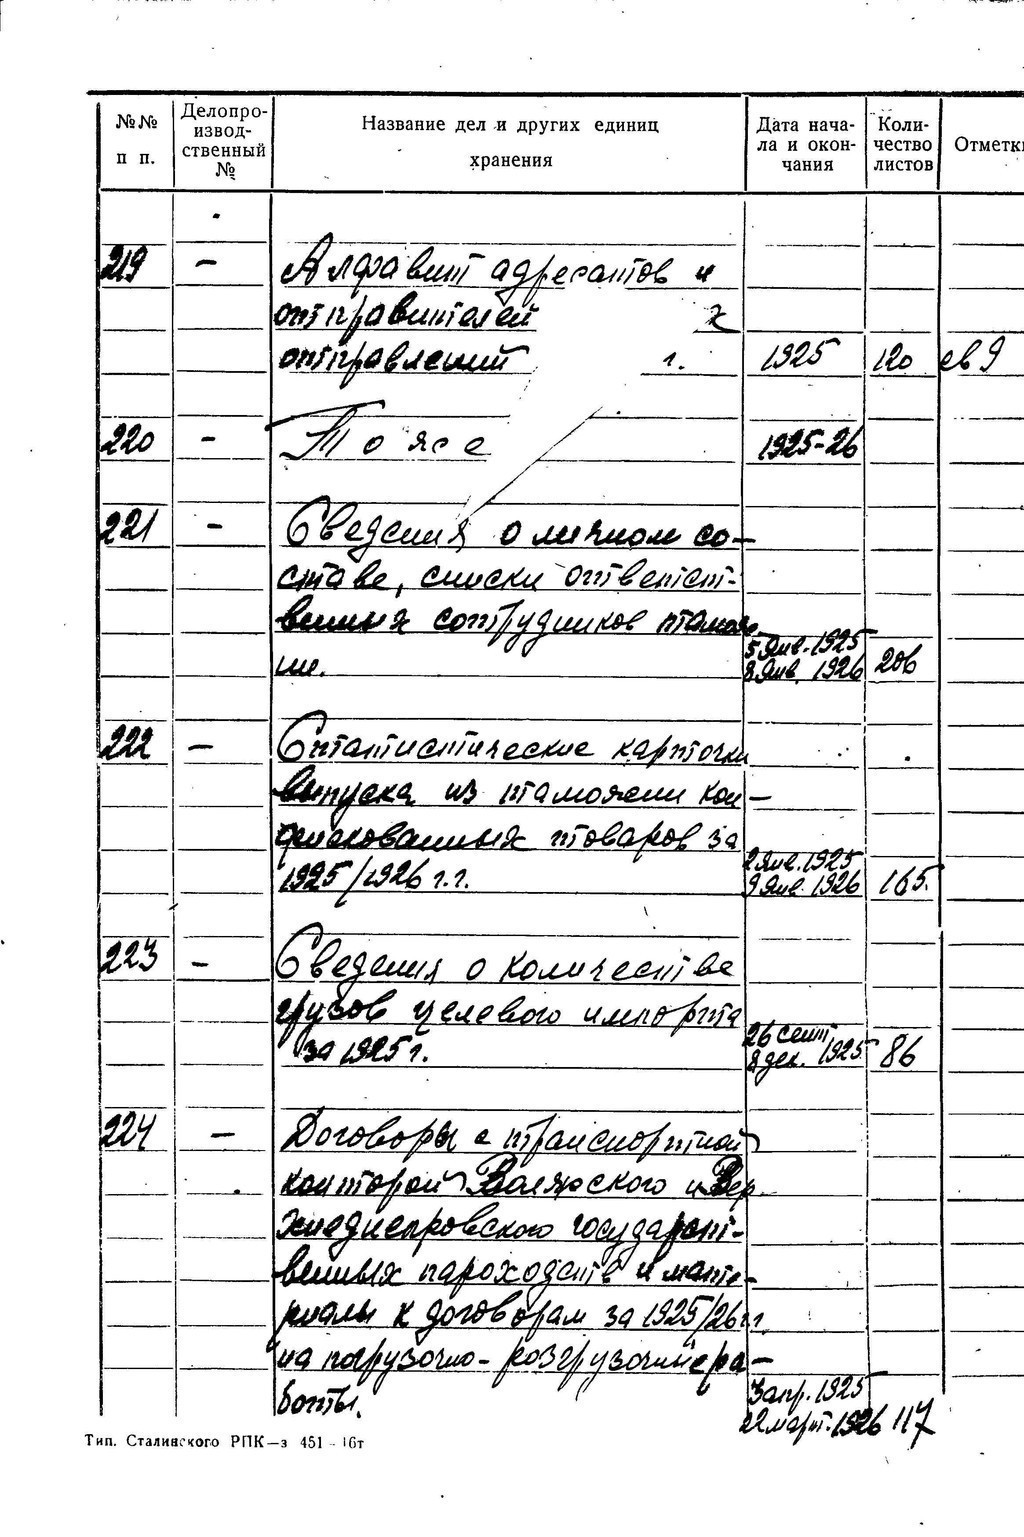 №№ п п.
Делопро-
извод-
ственный
№
Название дел и других единиц
хранения
Дата нача-
ла и окон-
чания
Коли-
чество
листов
Отметк
219 — Алфавит адресантов и
отправителей х
отправлений г. 1925 120
220 — То же 1925-26
221 — Сведения о личном со-
ставе, списки ответст-
венных сотрудников тамож
ни. 5 Янв. 1925 8 Янв. 1926 206
222 — Статистические карточки
выпуска из таможни кон-
фискованных товаров за
1925/1926 г.г. 2 Янв. 1925 9 Янв. 1926 165.
223 — Сведения о количестве
грузов целевого импорта
за 1925 г. 26 сент 8 дек. 1925 86
224 — Договоры с транспортной
конторой Волжского и Вер
хнеднепровского государст-
венных пароходств и мате-
риалы к договорам за 1925/26 гг
на погрузочно-розгрузочные ра-
боты. 3 апр. 1925 22 март. 1926 117
Тип. Сталинского РПК—з 451 - 16т